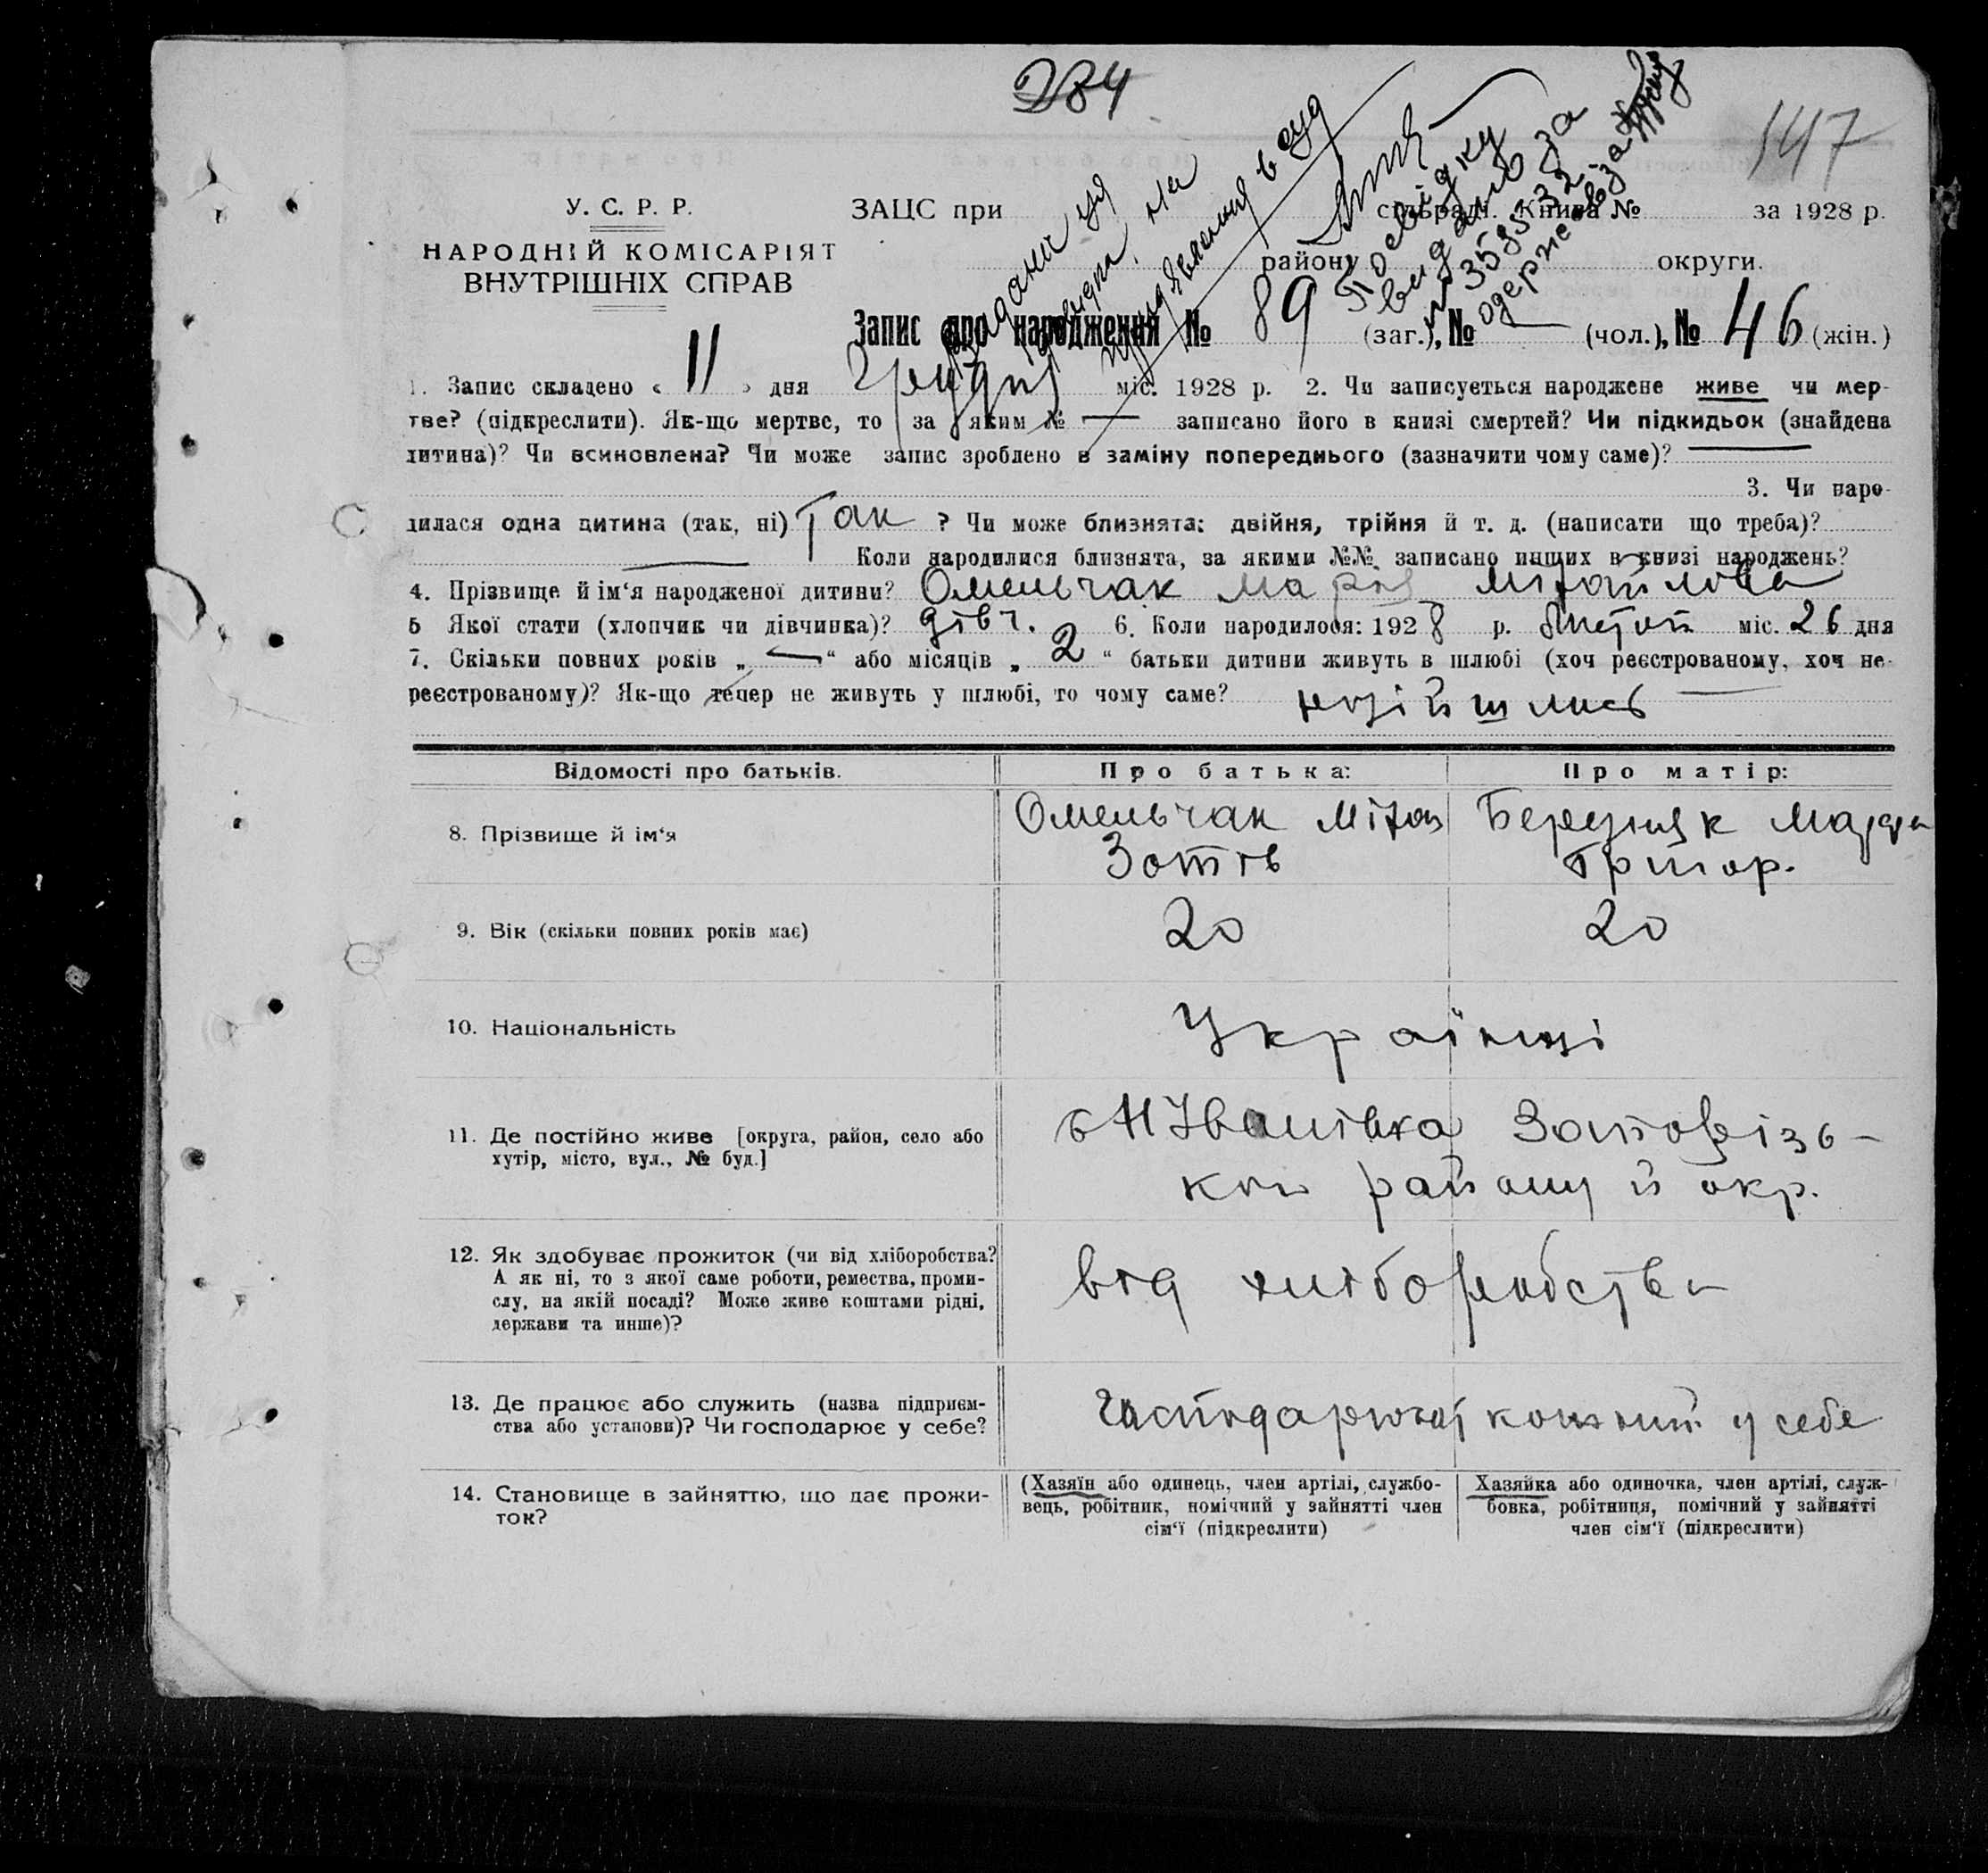 284
147
У. С. Р. Р.
НАРОДНІЙ КОМІСАРІЯТ
ВНУТРІШНІХ СПРАВ
ЗАЦС при сільраді. Книга № за 1928 р.
району округи.
в суд
Посвідку
видано за
№ 358532
Запис про народження № 89 (заг.), № — (чол.), № 46 (жін.)
1. Запис складено « 11 » дня Грудня міс. 1928 р. 2. Чи записується народжене живе чи мер-
тве? (підкреслити). Як-що мертве, то за яким № — записано його в книзі смертей? Чи підкидьок (знайдена
дитина)? Чи всиновлена? Чи може запис зроблено в заміну попереднього (зазначити чому саме)? —
3. Чи наро-
дилася одна дитина (так, ні) Так ? Чи може близнята: двійня, трійня й т. д. (написати що треба)?
— Коли народилися близнята, за якими №№ записано инщих в книзі народжень? —
4. Прізвище й ім‘я народженої дитини? Омельчак Марія Міхайловна
5 Якої стати (хлопчик чи дівчинка)? дівч. 6. Коли народилося: 1928 р. міс. 26 дня
7. Скільки повних років „ — “ або місяців „ 2 “ батьки дитини живуть в шлюбі (хоч реєстрованому, хоч не-
реєстрованому)? Як-що тепер не живуть у шлюбі, то чому саме? —
Відомості про батьків. Про батька: Про матір:
8. Прізвище й ім‘я Омельчак Міхай Березняк Марфа
Зотів Григор.
9. Вік (скільки повних років має) 20 20
10. Національність Українці
11. Де постійно живе [округа, район, село або
хутір, місто, вул., № буд.]
с Н Іванівка Запорізь-
кого району й окр.
12. Як здобуває прожиток (чи від хліборобства?
А як ні, то з якої саме роботи, ремества, проми-
слу, на якій посаді? Може живе коштами рідні,
держави та инше)?
від хліборобства
13. Де працює або служить (назва підприєм-
ства або установи)? Чи господарює у себе?
Господарюють кожний у себе
14. Становище в зайняттю, що дає прожи-
ток?
(Хазяїн або одинець, член артілі, службо-
вець, робітник, помічний у зайнятті член
сім‘ї (підкреслити)
Хазяйка або одиночка, член артілі, служ-
бовка, робітниця, помічний у зайнятті
член сім‘ї (підкреслити)